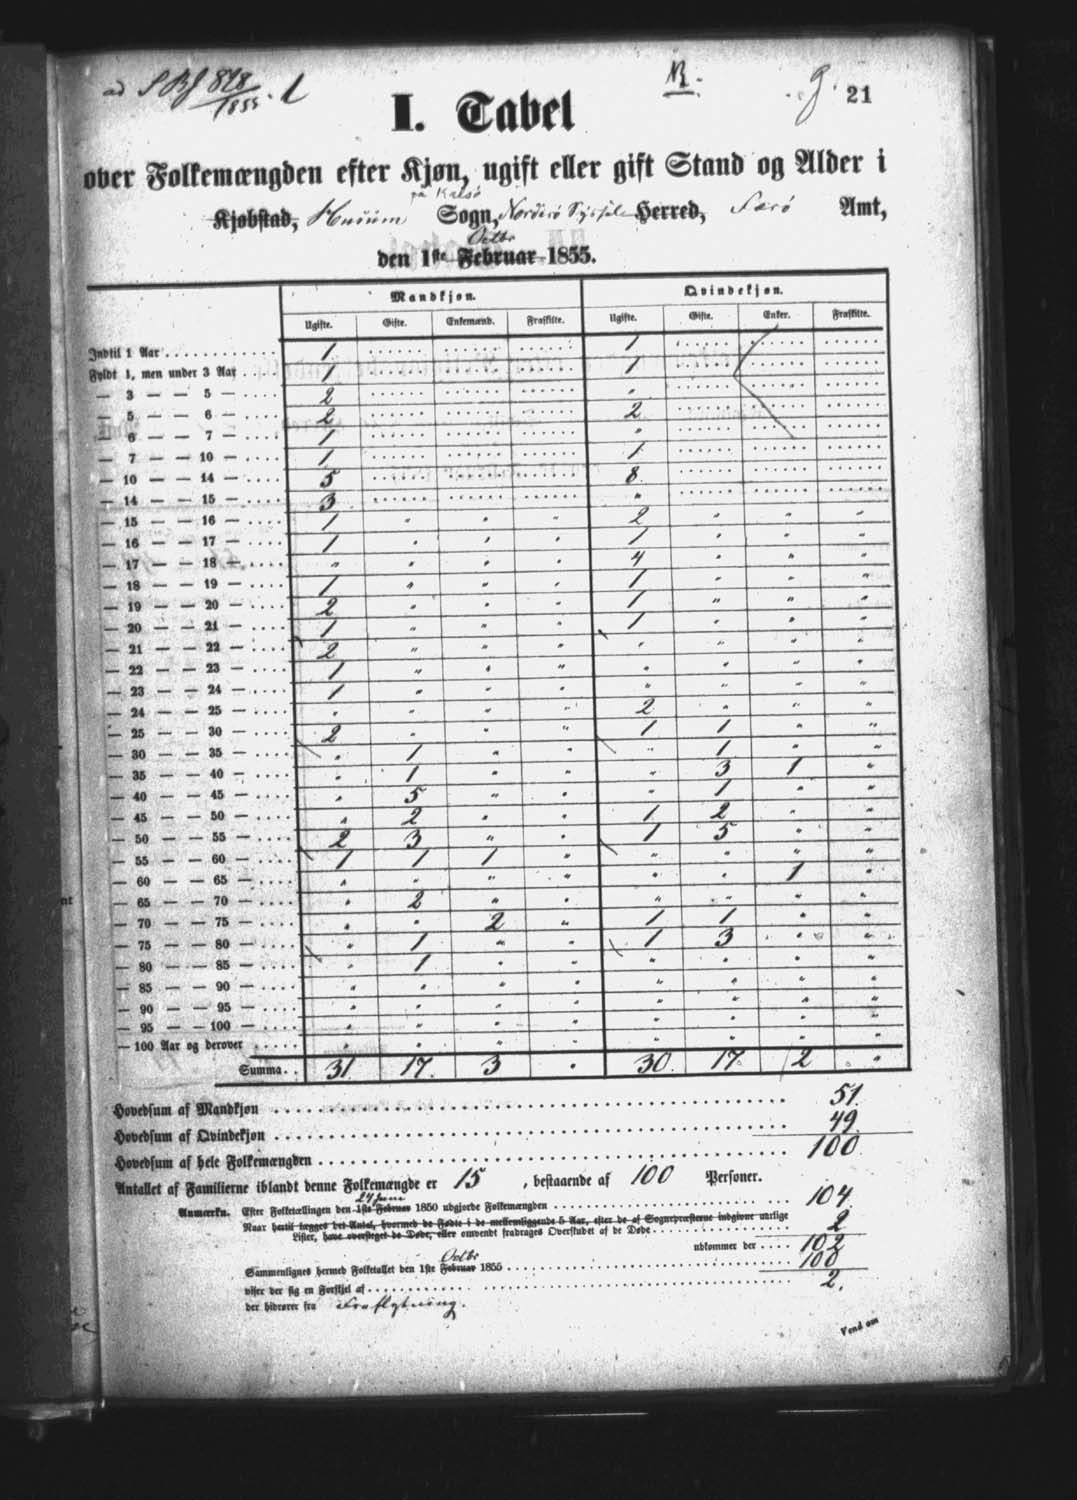 ad S Bf 818/1855. 1
g. 21
I. Tabel
over Folkemængden efter Kjøn, ugift eller gift Stand og Alder i
på Kalsø
Kjøbstad, Husum Sogn, Norderø Syssel Herred, Færø Amt,
Octbr
den 1ste Februar 1855.
Mandkjøn. Qvindekjøn.
Ugifte. Gifte. Enkemænd. Fraskilte. Ugifte. Gifte. Enker. Fraskilte.
Indtil 1 Aar 1 1
Fyldt 1, men under 3 Aar 1 1
— 3 — — 5 — 2 "
— 5 — — 6 — 2 2
— 6 — — 7 — 1 "
— 7 — — 10 — 1 1
— 10 — — 14 — 5 8
— 14 — — 15 — 3 "
— 15 — — 16 — 1 " " " 2 " " "
— 16 — — 17 — 1 " " " 1 " " "
— 17 — — 18 — " " " " 4 " " "
— 18 — — 19 — 1 " " " 1 " " "
— 19 — — 20 — 2 " " " 1 " " "
— 20 — — 21 — 1 " " " 1 " " "
— 21 — — 22 — 2 " " " " " " "
— 22 — — 23 — 1 " " " " " " "
— 23 — — 24 — 1 " " " " " " "
— 24 — — 25 — " " " " 2 " " "
— 25 — — 30 — 2 " " " 1 1 " "
— 30 — — 35 — " 1 " " " 1 " "
— 35 — — 40 — " 1 " " " 3 1 "
— 40 — — 45 — " 5 " " " 1 " "
— 45 — — 50 — " 2 " " 1 2 " "
— 50 — — 55 — 2 3 " " 1 5 " "
— 55 — — 60 — 1 1 1 " " " " "
— 60 — — 65 — " " " " " " 1 "
— 65 — — 70 — " 2 " " " " " "
— 70 — — 75 — " " 2 " 1 1 " "
— 75 — — 80 — " 1 " " 1 3 " "
— 80 — — 85 — " 1 " " " " " "
— 85 — — 90 — " " " " " " " "
— 90 — — 95 — " " " " " " " "
— 95 — — 100 — " " " " " " " "
— 100 Aar og derover " " " " " " " "
Summa. 31. 17. 3 " 30. 17 2 "
Hovedsum af Mandkjøn 51.
Hovedsum af Qvindekjøn 49.
Hovedsum af hele Folkemængden 100
Antallet af Familierne iblandt denne Folkemængde er 15, bestaaende af 100 Personer.
24 Juni
Anmærkn. Efter Folketællingen den 1ste Februar 1850 udgjorde Folkemængden 104
Naar hertil lægges det Antal, hvormed de Fødte i de mellemliggende 5 Aar, efter de af Sognepræsterne indgivne aarlige
Lister, have oversteget de Døde, eller omvendt fradrages Overskudet af de Døde 2
udkommer der 102
Octbr
Sammenlignes hermed Folketallet den 1ste Februar 1855 100
viser der sig en Forskjel af 2.
der hidrører fra Fraflytning.
Vend om